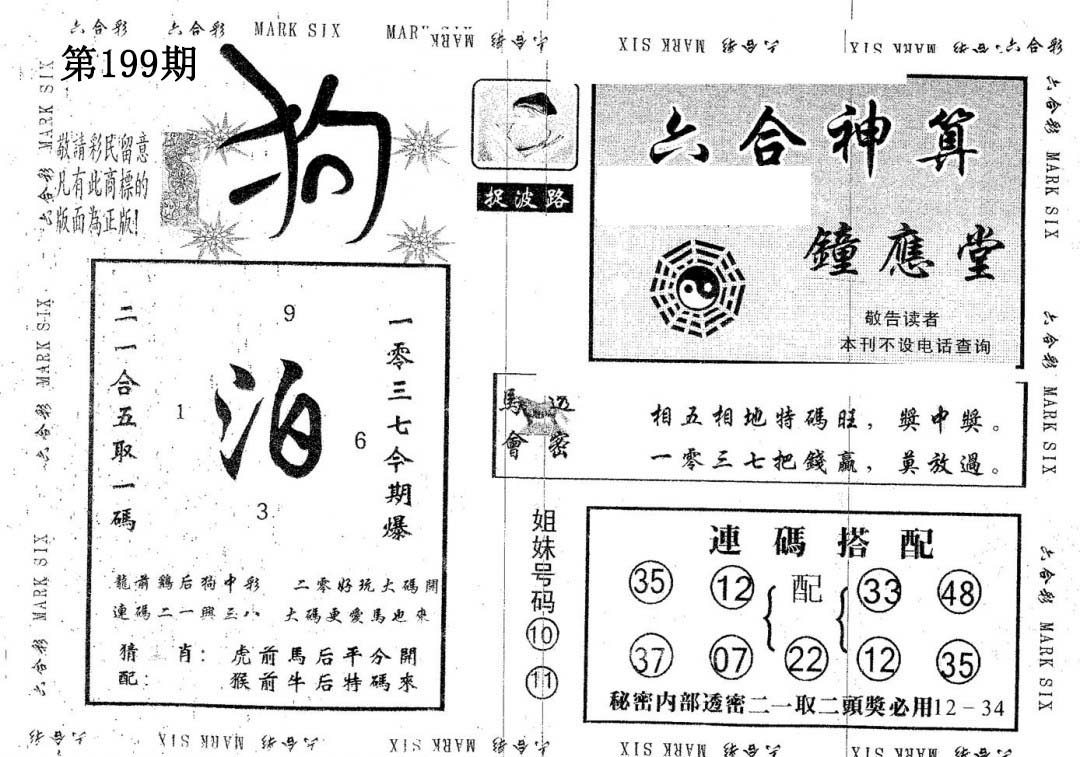 六合彩 六合彩 MARK SIX MAR
MARK 六合彩
六合彩 MARK SIX
六合彩 MARK SIX
六合彩
第199期
狗
敬請彩民留意
凡有此商標的
版面為正版!
捉波路
六合神算
鐘應堂
敬告读者
本刊不设电话查询
二一合五取一碼
9
1
泊
6
3
一零三七今期爆
龍前鷄后狗中彩 二零好玩大碼開
連碼二一興三八 大碼更愛馬也來
猜 肖: 虎前馬后平分開
配: 猴前牛后特碼來
馬會
透密
相五相地特碼旺,獎中獎。
一零三七把錢贏,莫放過。
姐妹号码
10
11
連碼搭配
35 12 配 33 48
37 07 22 12 35
秘密内部透密二一取二頭獎必用12-34
六合彩 MARK SIX
六合彩 MARK SIX
六合彩 MARK SIX
六合彩 MARK SIX
六合彩 MARK SIX
六合彩 MARK SIX
六合彩
六合彩 MARK SIX
六合彩 MARK SIX
六合彩 MARK SIX
六合彩 MARK SIX